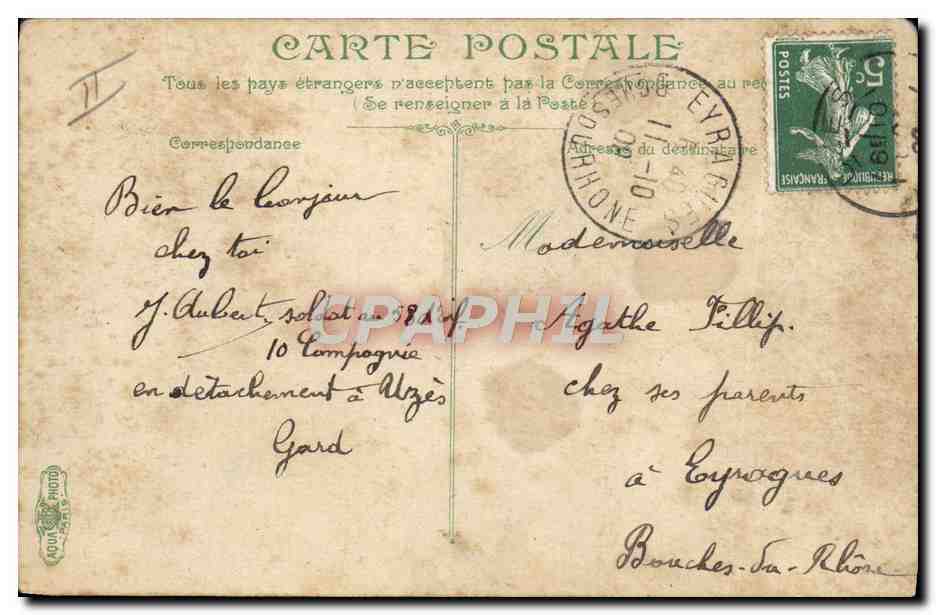 II
CARTE POSTALE
Tous les pays étrangers n'acceptent pas la Correspondance au
(Se renseigner à la Poste)
Correspondance
Adresse du destinataire
EYRAGUES
BCHES DU RHONE
11-10
08
5c
POSTES
REPUBLIQUE FRANÇAISE
Bien le bonjour
chez toi
J. Aubert, soldat au 58 d'inf.
10 Compagnie
en détachement à Uzès
Gard
Mademoiselle
Agathe Fillip.
chez ses parents
à Eyragues
Bouches-du-Rhône
CPAPHIL
AQUA PHOTO
PARIS